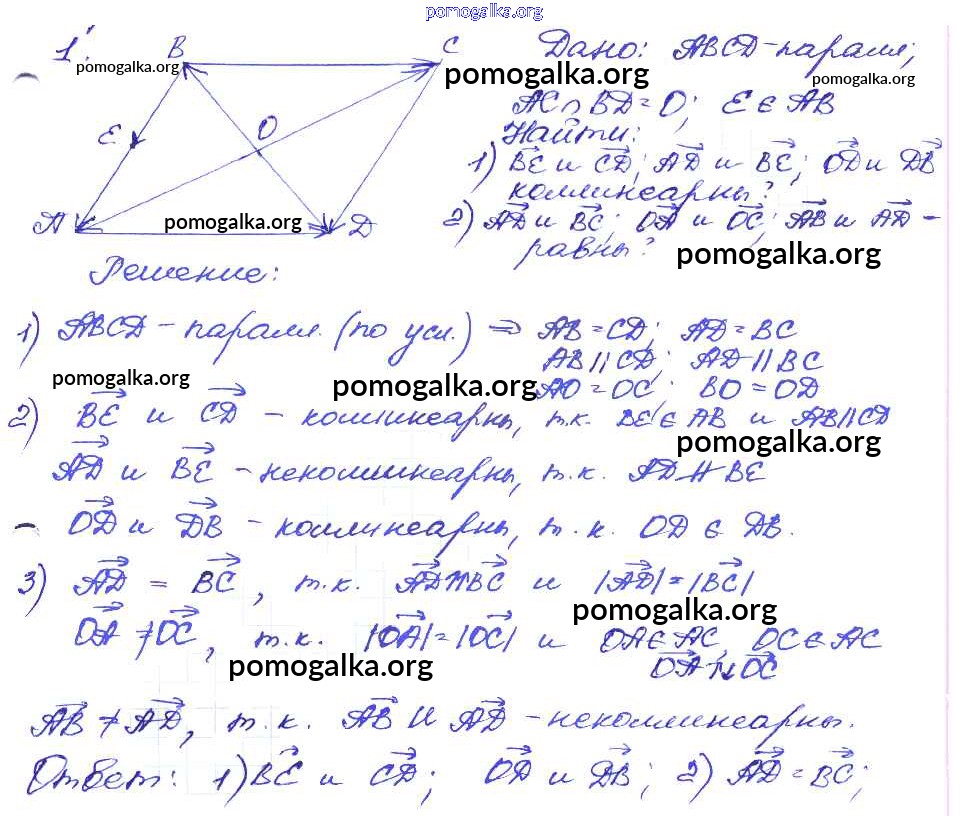 pomogalka.org
1'. B C Дано: ABCD-паралл;
pomogalka.org pomogalka.org pomogalka.org
AC ∩ BD = O; E ∈ AB
E O Найти:
1) BE и CD; AD и BE; OD и DB
коллинеарны?
A pomogalka.org D 2) AD и BC; OA и OC; AB и AD -
равны? pomogalka.org
Решение:
1) ABCD - паралл. (по усл.) ⇒ AB = CD; AD = BC
AB || CD; AD || BC
pomogalka.org pomogalka.org AO = OC; BO = OD
2) BE и CD - коллинеарны, т.к. BE ∈ AB и AB || CD
pomogalka.org
AD и BE - неколлинеарны, т.к. AD ∦ BE
OD и DB - коллинеарны, т.к. OD ∈ DB.
3) AD = BC, т.к. AD ↑↑ BC и |AD| = |BC|
pomogalka.org
OA ≠ OC, т.к. |OA| = |OC| и OA ∈ AC, OC ∈ AC
pomogalka.org OA ↑↓ OC
AB ≠ AD, т.к. AB и AD - неколлинеарны.
Ответ: 1) BE и CD; OD и DB; 2) AD = BC;